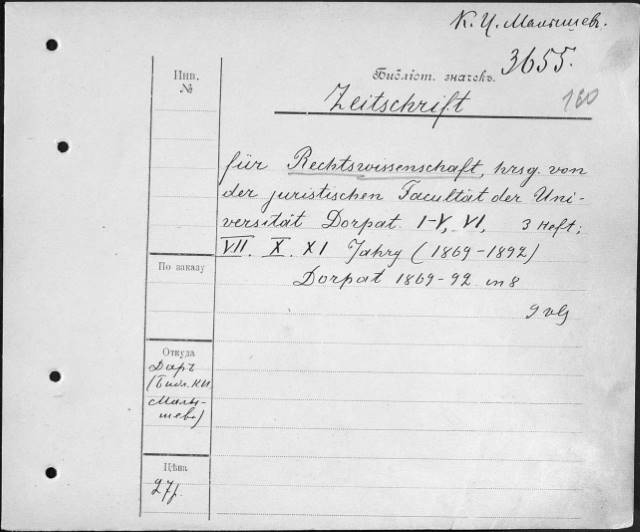 К. И. Малышев.
3655.
Инв.
№
Библіот. значекъ.
Zeitschrift
160
für Rechtswissenschaft, hrsg. von
der juristischen Facultät der Uni-
versität Dorpat I-V, VI, 3 Heft;
VII. X. XI Jahrg (1869-1892)
По заказу
Dorpat 1869-92 in 8
9 vlg
Откуда
Даръ
(Библ. КИ
Малы-
шева)
Цѣна
27р.